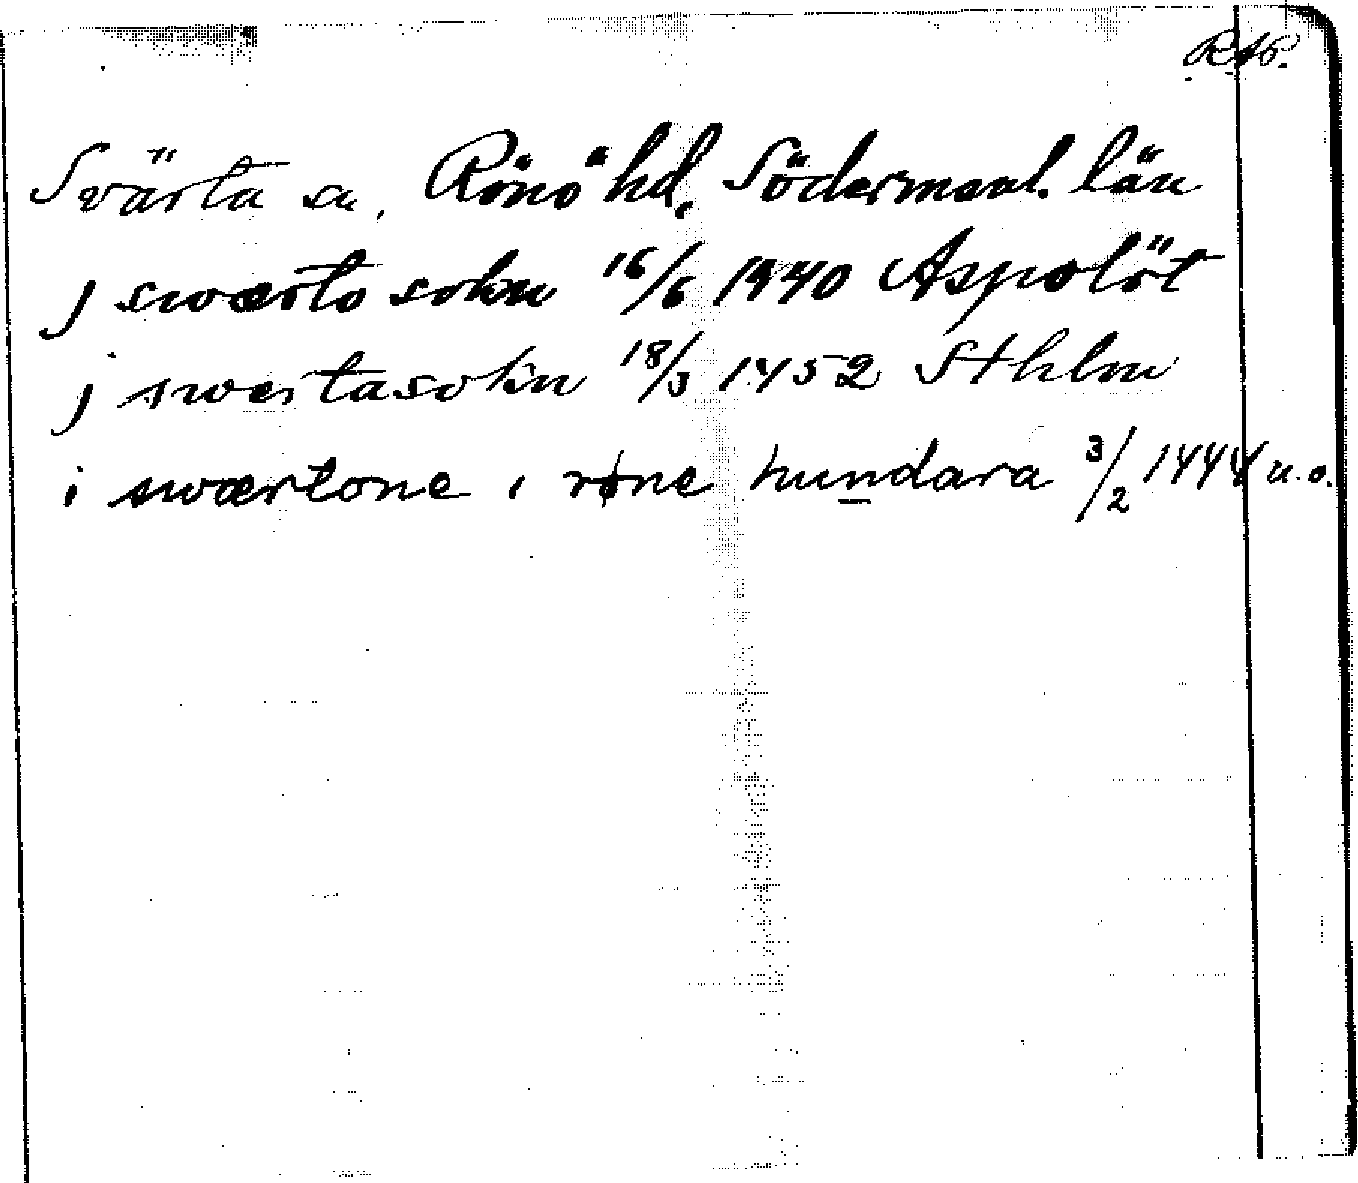 RAP.
Svärta sn, Rönö hd, Södermanl. län
j swærto sokn 16/6 1440 Aspolöt
j swertasokn 18/3 1452 Sthlm
i swærtone i røne hundara 3/2 1444 u.o.